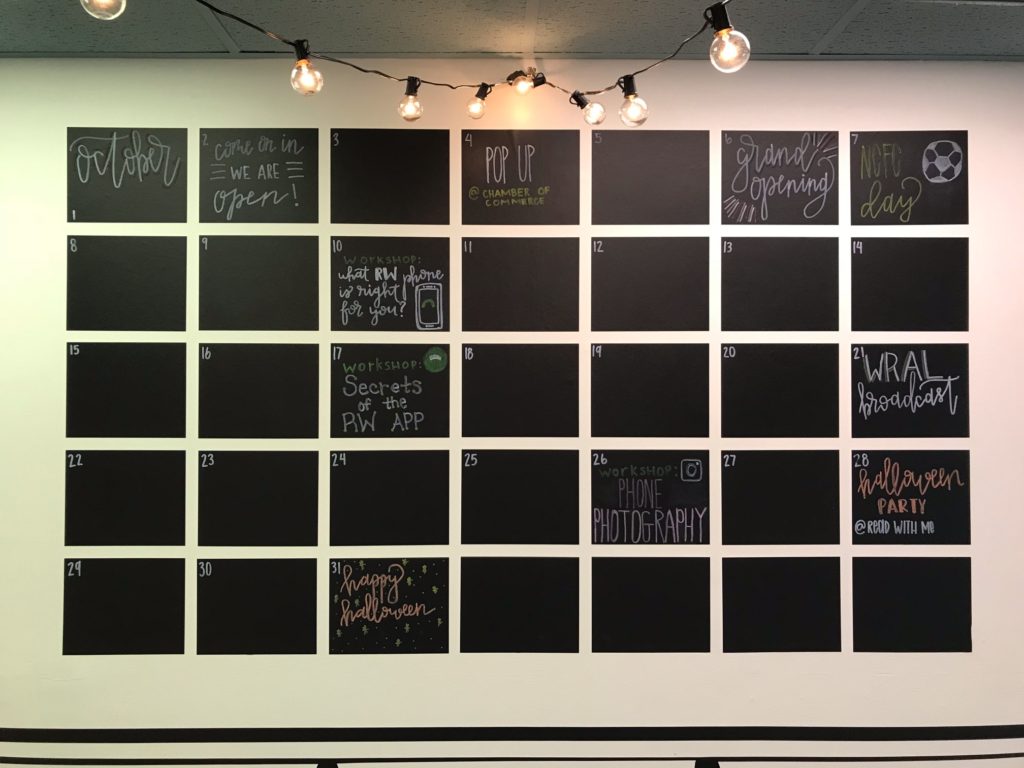 october
1
2
come on in
WE ARE
open!
3
4
POP UP
@ CHAMBER OF
COMMERCE
5
6
grand
opening
7
NCFC
day
8
9
10
WORKSHOP:
what RW phone
is right
for you?
11
12
13
14
15
16
17
WORKSHOP:
Secrets
of the
RW APP
18
19
20
21
WRAL
broadcast
22
23
24
25
26
WORKSHOP:
PHONE
PHOTOGRAPHY
27
28
halloween
PARTY
@ READ WITH ME
29
30
31
happy
halloween